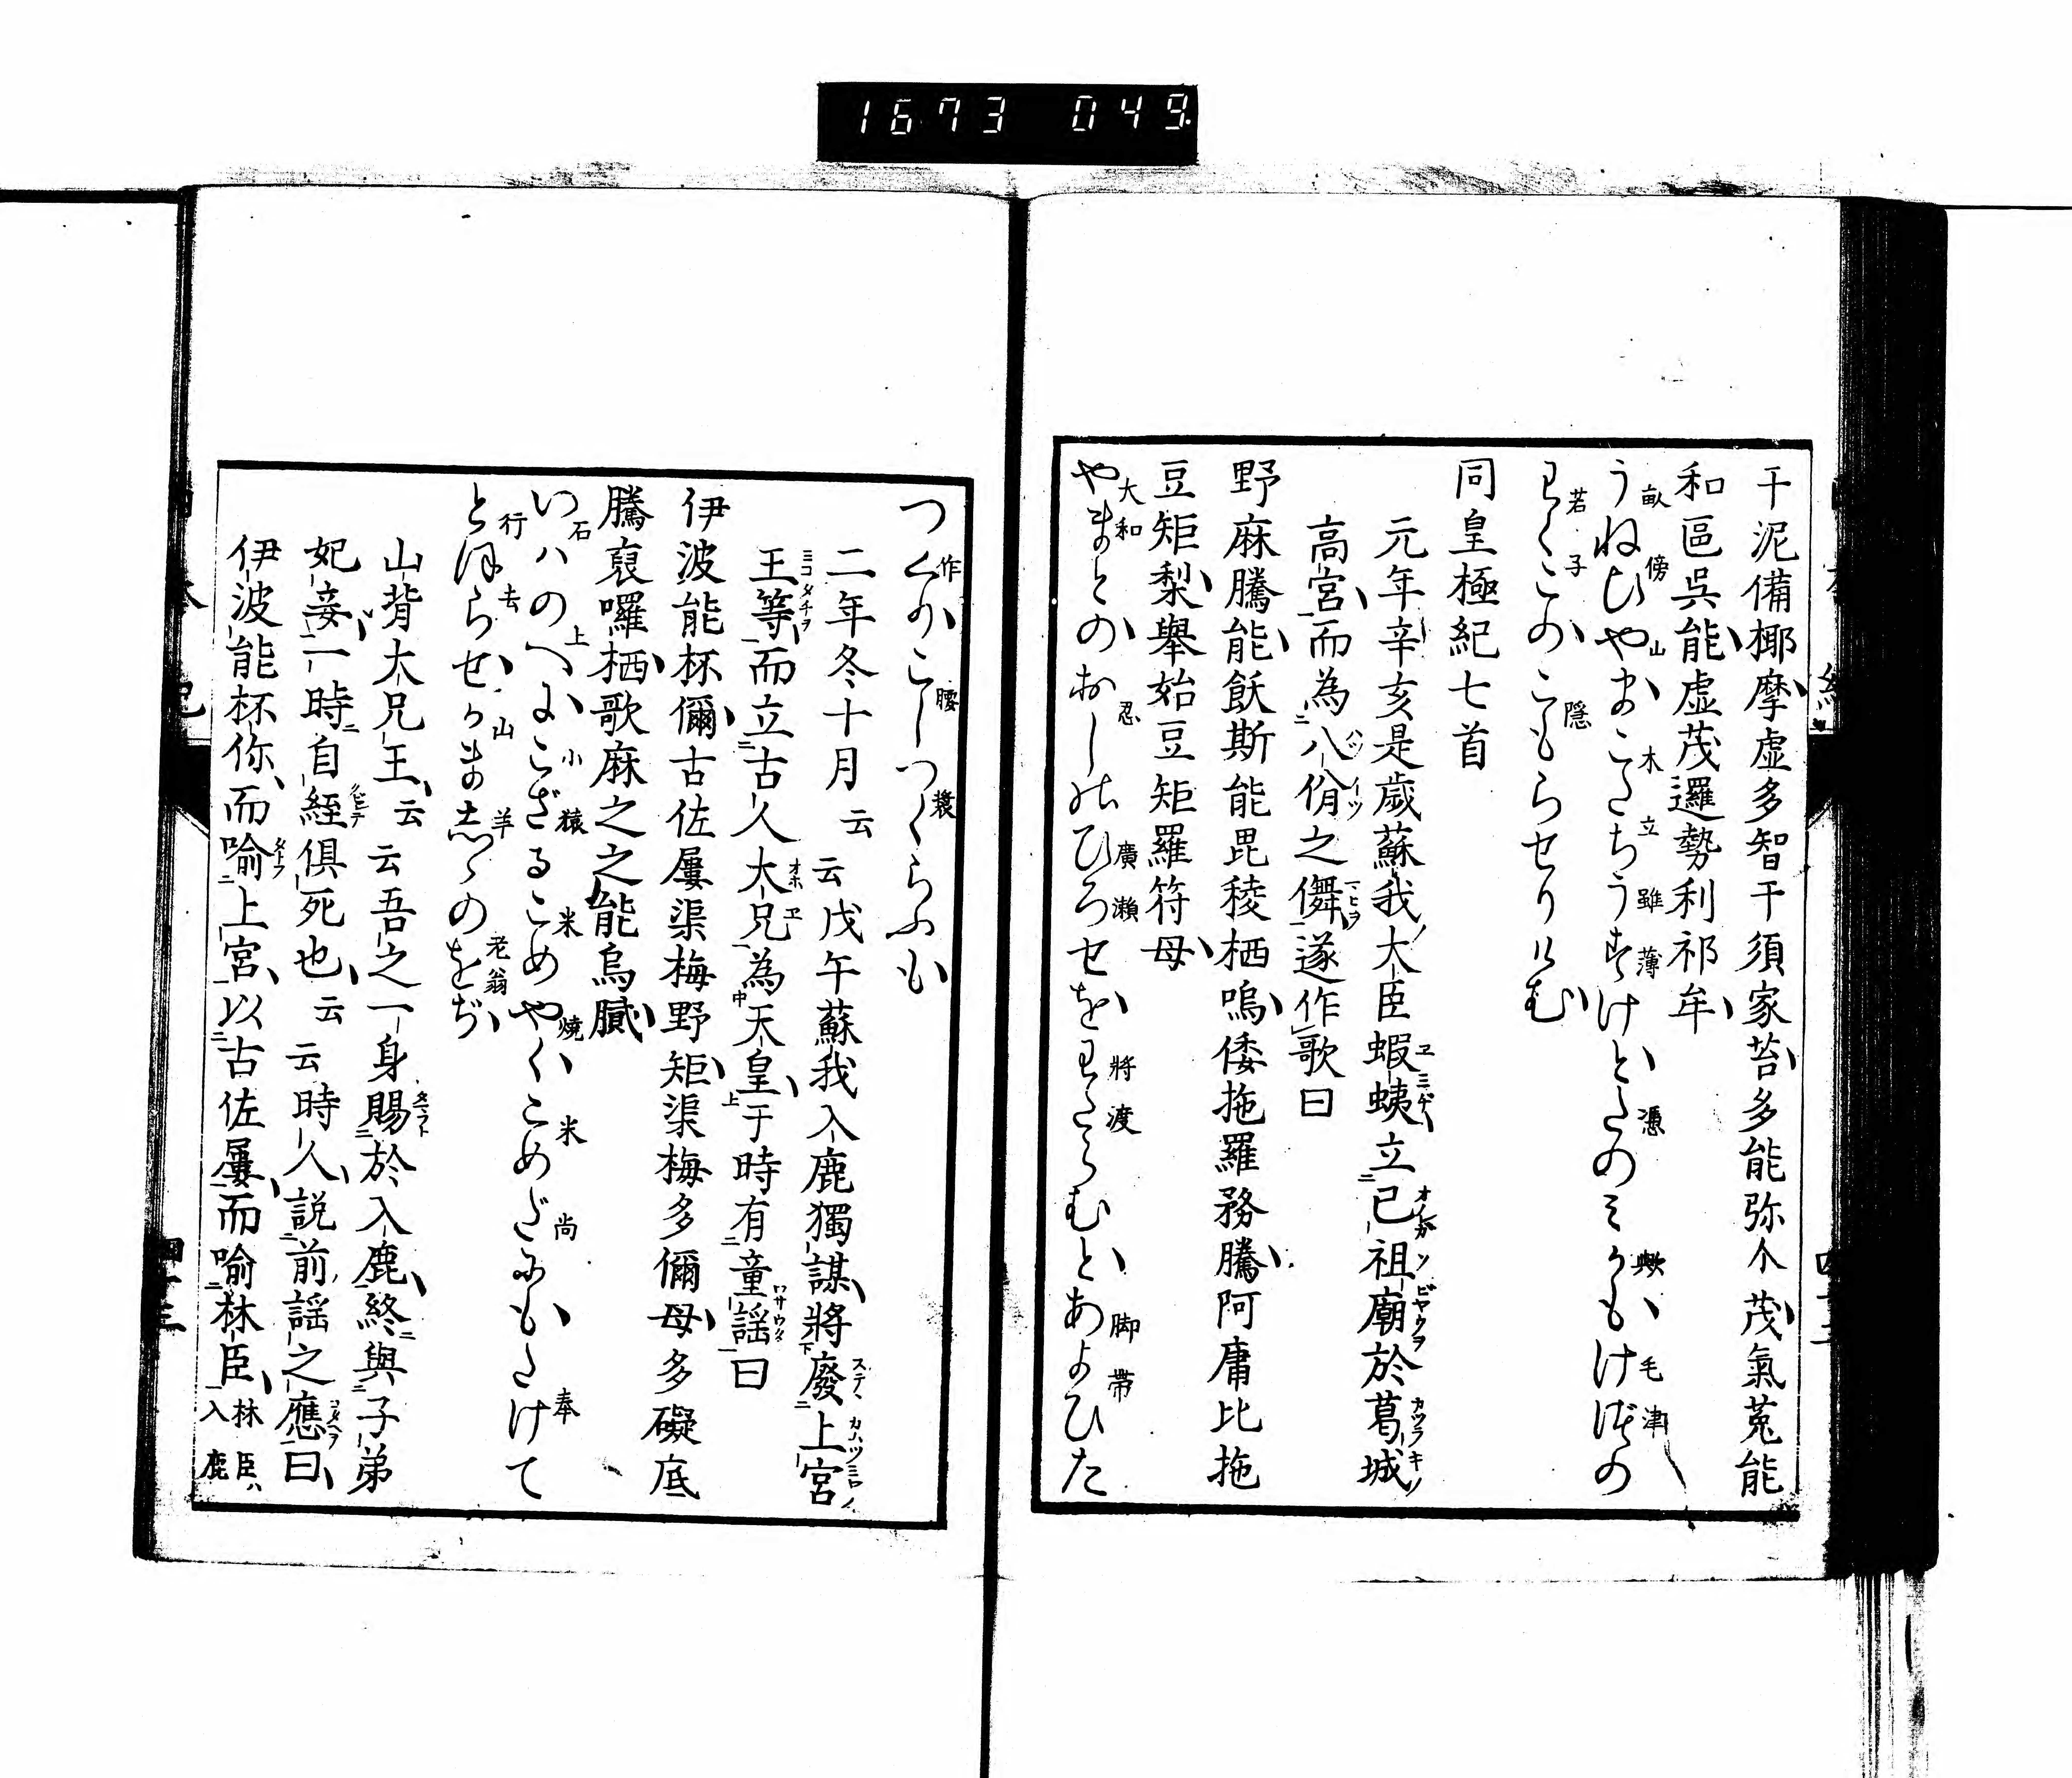 1673 049
干泥備椰摩虚多智干須家苔多能弥介茂氣菟能
和區呉能虚茂邏勢利祁牟
うねひやまこたちうすけとたのみかもけづの
わくこのこもらせりけむ
同皇極紀七首
元年辛亥是歳蘇我大臣蝦蛦立已祖廟於葛城
高宮而為八佾之儛遂作歌曰
野麻騰能飫斯能毘稜栖嗚倭拖羅務騰阿庸比拖
豆矩梨舉始豆矩羅符母
やまとのおしのひろせをわたらむとあよひた
つくりこしつくらふも
二年冬十月云云戊午蘇我入鹿獨謀將廢上宮
王等而立古人大兄為天皇于時有童謡曰
伊波能杯儞古佐屢渠梅野矩渠梅多儞母多礙底
騰裒囉栖歌麻之之能烏膩
いはのへにこざるこめやくこめだにもたけて
とほらせかまししのをぢ
山背大兄王云云吾之一身賜於入鹿終與子弟
妃妾一時自經俱死也云云時人説前謡之應曰
伊波能杯你而喻上宮以古佐屢而喻林臣林臣入鹿